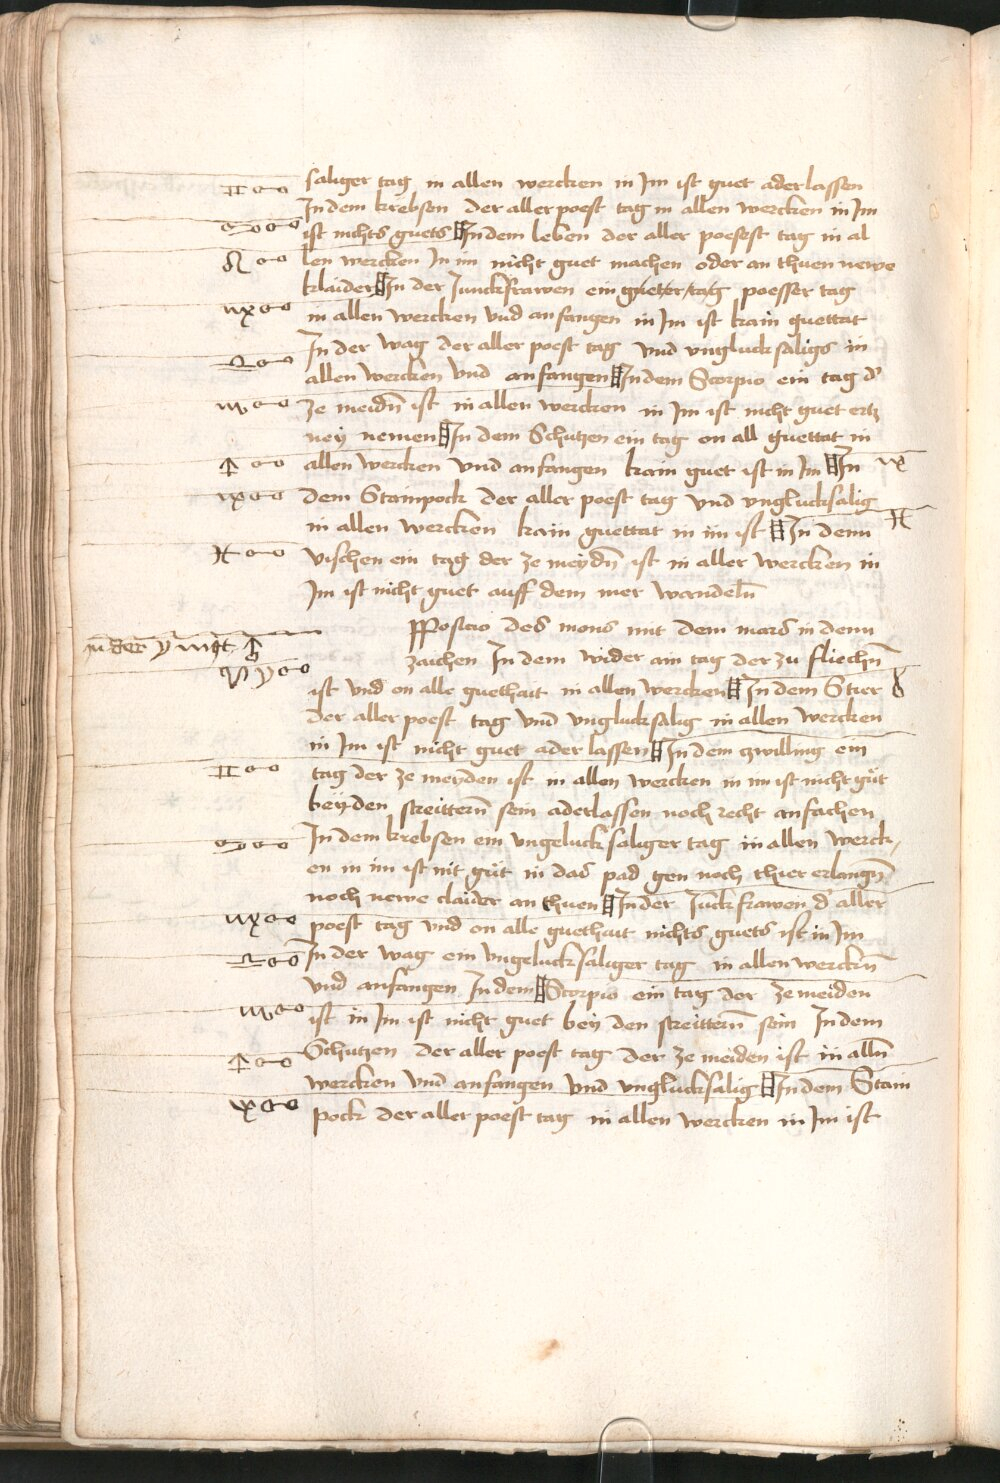 saliger tag in allen wercken in Im ist guet aderlassen
In dem krebsen der aller poest tag in allen wercken in Im
ist nichts guets In dem leben der aller poesest tag in al
len wercken In im nicht guet machen oder an thuen newe
klaider In der Junckfrawen ein gueter tag poesser tag
in allen wercken vnd anfangen in Im ist kain guettat
In der wag der aller poest tag vnd vngluck saligs in
allen wercken vnd anfangen In dem Scorpio ein tag d'
ze meidn̄ ist in allen wercken in Im ist nicht guet ertz
ney nemen In dem Schutzen ein tag on all guettat in
allen wercken vnd anfangen kain guet ist in Im In
dem Stainpock der aller poest tag vnd vnglucksalig
in allen wercken kain guettat in im ist In dem
vischen ein tag der ze meydn̄ ist in aller wercken in
Im ist nicht guet auff dem mer wandeln̄
Posicio des mons mit dem mars in denn
zaichen In dem wider ain tag der zu fliechn̄
ist vnd on alle guethait in allen wercken In dem Stier
der aller poest tag vnd vnglucksalig in allen wercken
in Im ist nicht guet ader lassen In dem zwilling ein
tag der ze meyden ist in allen wercken in im ist nicht guͤt
bey den streittern̄ sein aderlassen noch recht anfachen
In dem krebsen ein vngeluck saliger tag in allen werck
en in im ist nit guͤt in das pad gen noch thier erlangn̄
noch newe claider an thuen In der Junckfrawen d' aller
poest tag vnd on alle guethait nichts guets ist in Im
In der wag ein vngelucksaliger tag in allen werckn̄
vnd anfangen In dem Scorpio ein tag der ze meiden
ist in Im ist nicht guet bey den streittern̄ sein In dem
Schutzen der aller poest tag der ze meiden ist in alln̄
wercken vnd anfangen vnd vnglucksalig In dem Stain
pock der aller poest tag in allen wercken in Im ist